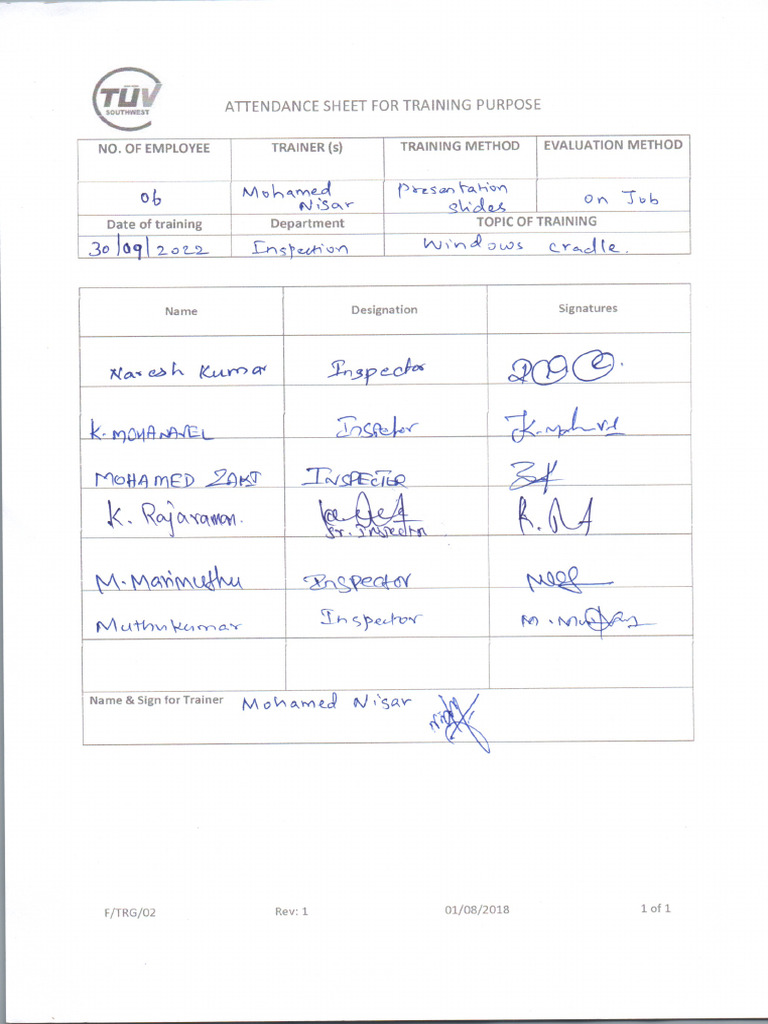 TÜV
SOUTHWEST
ATTENDANCE SHEET FOR TRAINING PURPOSE
NO. OF EMPLOYEE TRAINER (s) TRAINING METHOD EVALUATION METHOD
06 Mohamed Nisar Presentation slides on Job
Date of training Department TOPIC OF TRAINING
30/09/2022 Inspection Windows cradle.
Name Designation Signatures
Naresh Kumar Inspector
K. MOHANAVEL Inspector
MOHAMED ZAKI INSPECTER
K. Rajaraman. Sr. Inspector
M. Marimuthu Inspector
Muthukumar Inspector
Name & Sign for Trainer Mohamed Nisar
F/TRG/02 Rev: 1 01/08/2018 1 of 1